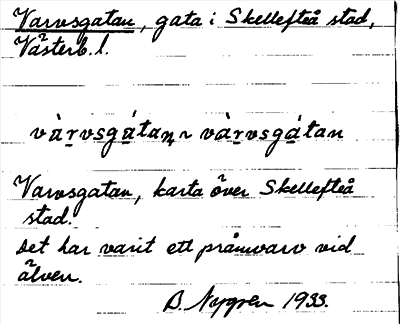 Varvsgatan, gata i Skellefteå stad,
Västerb. l.
vàrvsgátan ~ vàrvsgátan
Varvsgatan, karta över Skellefteå
stad.
Det har varit ett pråmvarv vid
älven.
B. Nygren 1933.